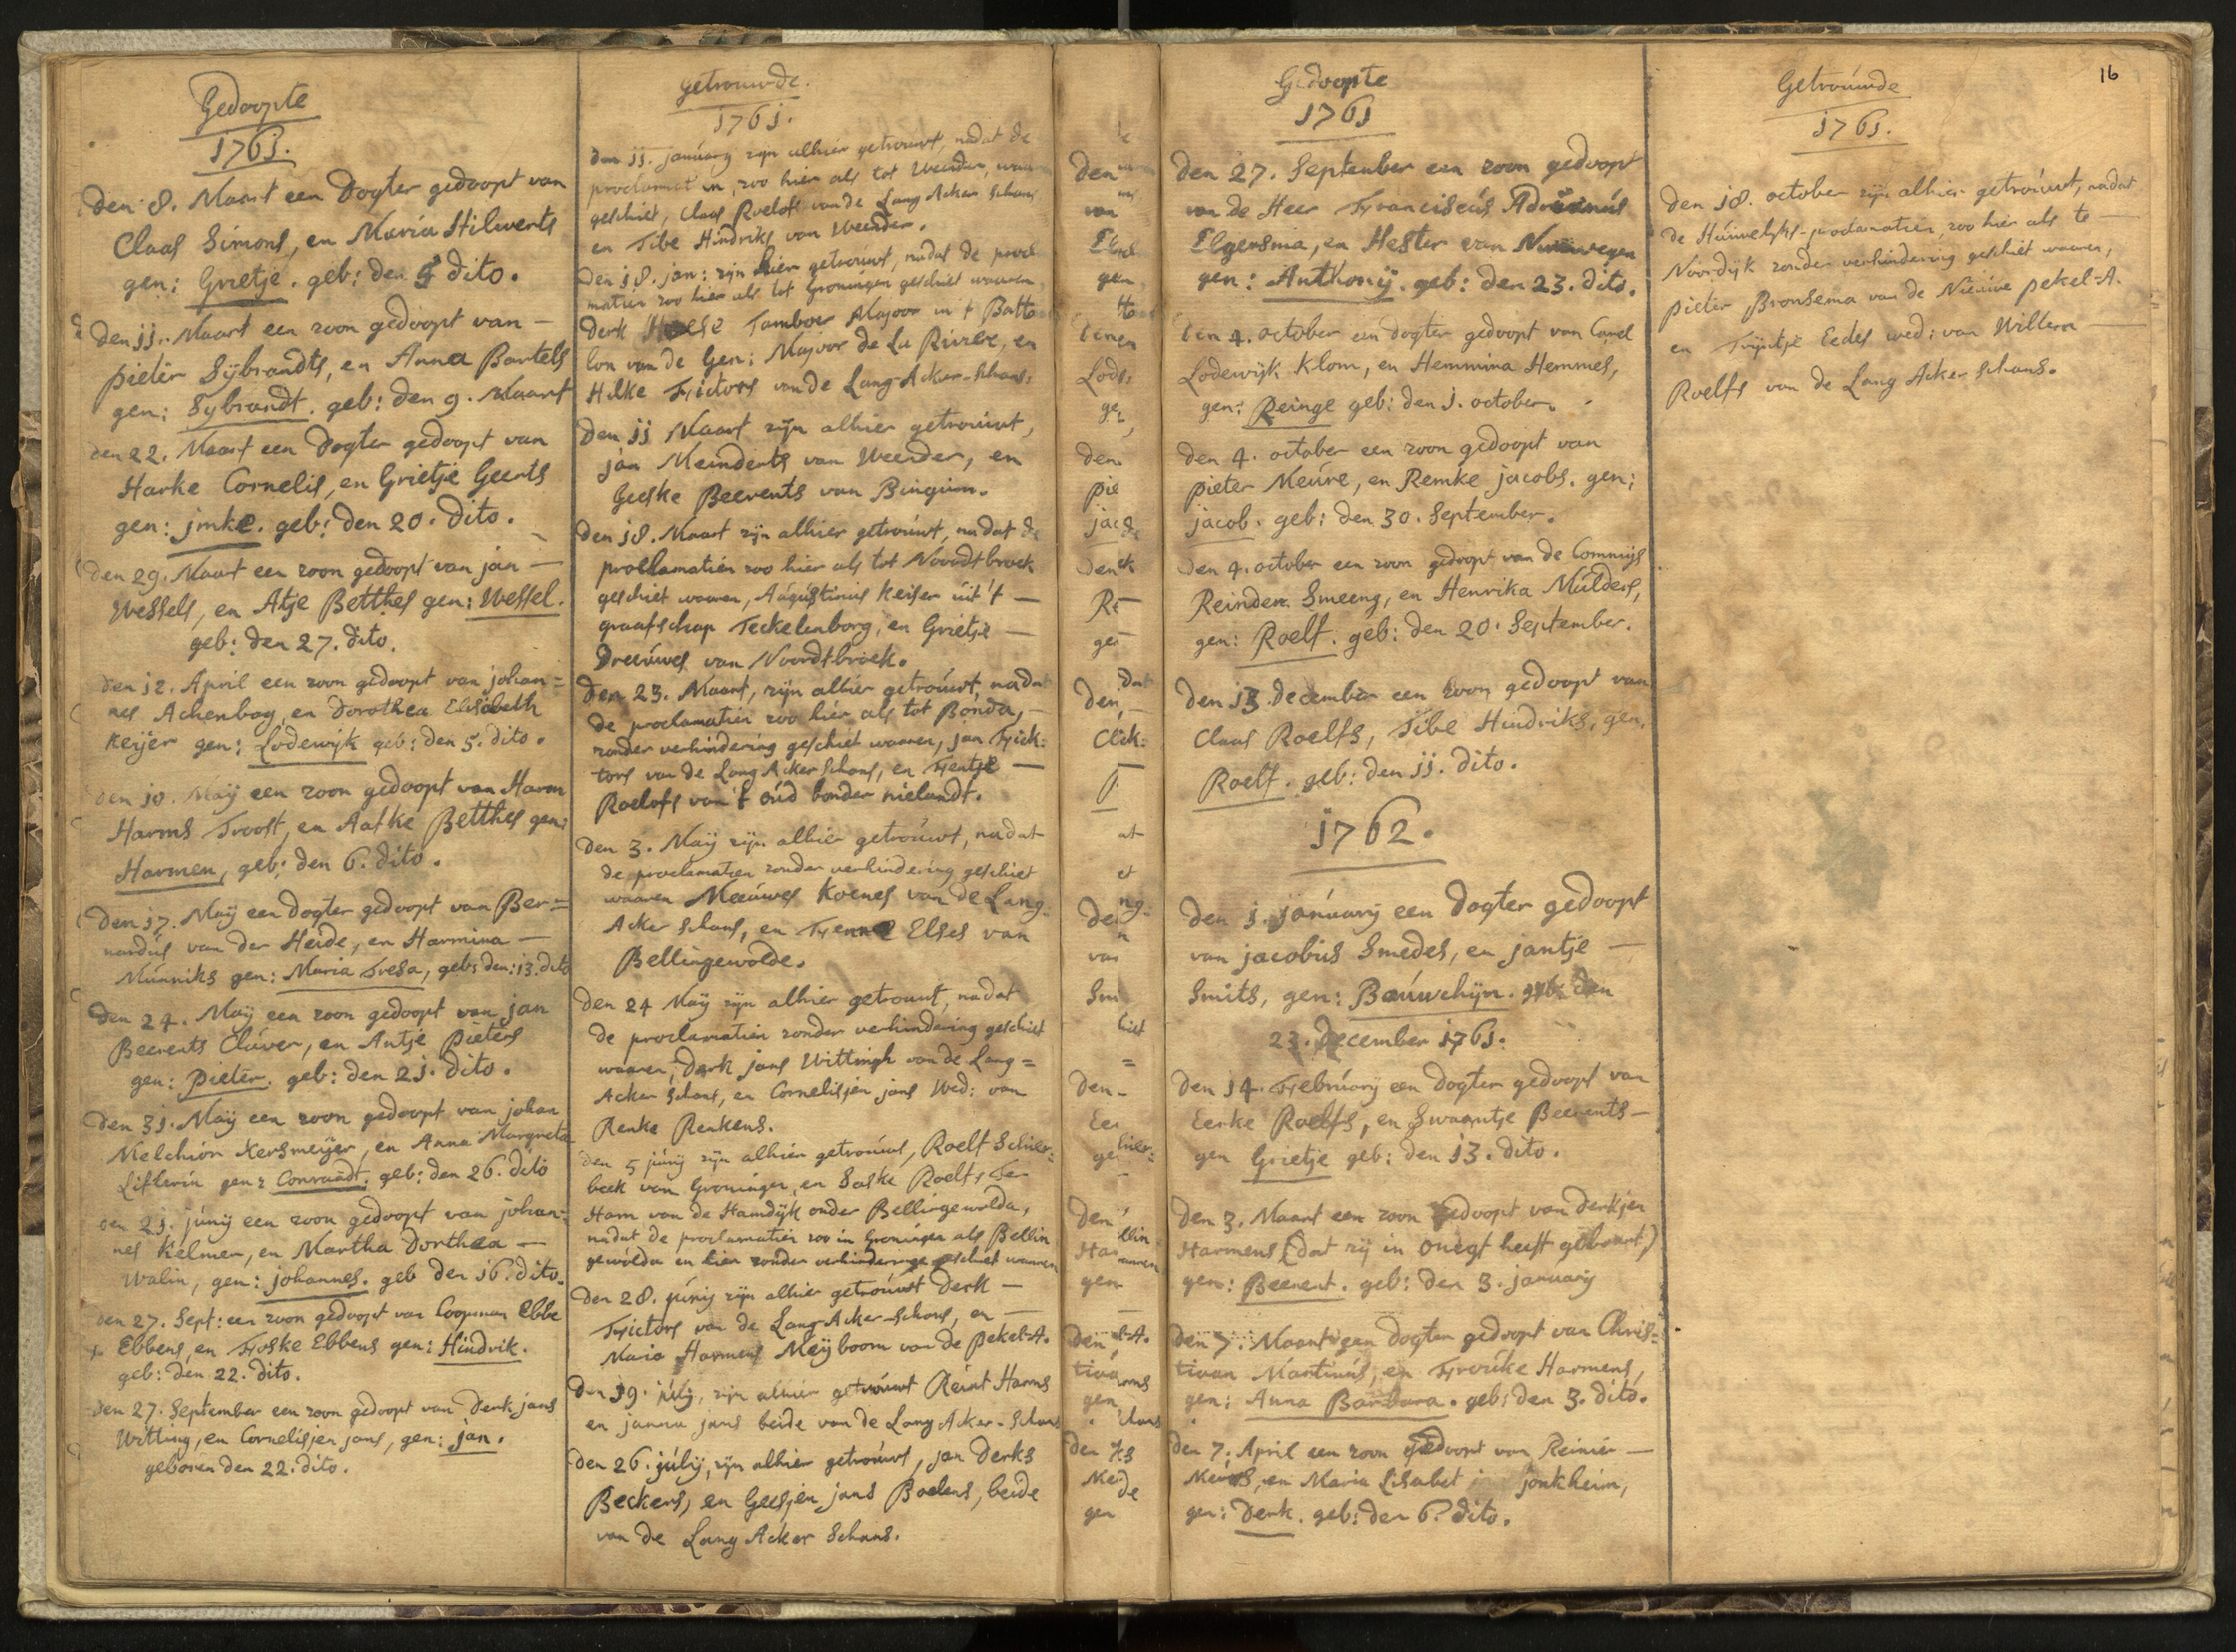 Gedoopte
1761.
Den 8. Maart een Dogter gedoopt van
Claas Simons, en Maria Hilwerts
gen: Grietje. geb: den dito.
Den 11. Maart een zoon gedoopt van —
pieter Sÿbrandts, en Anna Bartels
gen: Sybrandt. geb: den 9. Maart
den 22. Maart een Dogter gedoopt van
Harke Cornelis, en Grietje Geerts
gen: jmke. geb: den 20. dito.
Den 29. Maart een zoon gedoopt van jan —
Wessels, en Atje Betthes gen: Wessel.
geb: den 27. dito.
den 12. April een zoon gedoopt van johan=
nes Achenbag, en Dorothea Elisabeth
Keijer gen: Lodewijk geb: den 5. dito.
den 10. Maÿ een zoon gedoopt van Harm
Harms Troost, en Aafke Betthes gen:
Harmen, geb: den 6. dito.
Den 17. Maÿ een Dogter gedoopt van Ber=
nardus van der Heide, en Harmina —
Munniks gen: Maria Tresa, geb: den: 13. dito
Den 24. Maÿ een zoon gedoopt van jan
Beerents Cluver, en Antje Pieters
gen: pieter. geb: den 21. dito.
Den 31. Maÿ een zoon gedoopt van johan
Melchior Kersmeÿer, en Anna Margreta
Lifterin gen: Conraadt. geb: den 26. dito
den 21. junÿ een zoon gedoopt van johan=
nes Kelmer, en Martha Dorthea —
Walin, gen: johannes. geb den 16. dito.
den 27. Sept: een zoon gedoopt van Coopman Ebbe
Ebbens, en Foske Ebbens gen: Hindrik.
geb: den 22. dito.
den 27. September een zoon gedoopt van Derk jans
Witting, en Cornelisjen jans, gen: jan.
geboren den 22. dito.
Getrouwde.
1761.
den 11. januarÿ zijn alhier getrouwt, nadat de
proclamatien, zoo hier als tot Weender, waaren
geschiet, Claas Roelofs van de Lang Acker Schans
en Tibe Hindriks van Weender.
Den 18. jan: zijn hier getrouwt, nadat de procl
matien zoo hier als tot Groningen geschiet waaren,
Derk Tamboer Majoor in 't Batta
lon van de Gen: Majoor de La Riviere, en
Hilke Fictors van de Lang-Acker-Schans.
Den 11 Maart zijn alhier getrouwt,
jan Meinderts van Weender, en
Geeske Beerents van Bingum.
Den 18. Maart zijn alhier getrouwt, nadat de
proclamatien zoo hier als tot Noordtbroek
geschiet waaren, Augustinus Keiser uit 't —
graafschap Teckelenborg, en Grietje —
Dreeuwes van Noordtbroek.
Den 23. Maart, zijn alhier getrouwt, nadat
de proclamatien zoo hier als tot Bonda, —
zonder verhindering geschiet waaren, jan Fick=
tors van de Lang Acker Schans, en Fentje —
Roelofs van 't oud bonder nielandt.
den 3. Maÿ zijn alhier getrouwt, nadat
de proclamatien zonder verhindering geschiet
waaren Meeuwes Koenes van de Lang-
Acker Schans, en Fenne Elses van
Bellingewolde.
Den 24 Maÿ zijn alhier getrouwt, nadat
de proclamatien zonder verhindering geschiet
waaren, Derk jans Wittingh van de Lang=
Acker Schans, en Cornelisjen jans Wed: van
Renke Renkens.
den 5 junÿ zijn alhier getrouwt, Roelf Schier=
beek van Groningen, en Saske Roelfs Ter
Ham van de Hamdÿk onder Bellingewolda,
nadat de proclamatien zoo in Groningen als Bellin
gewolda en hier zonder verhinderinge geschiet waaren
Den 28. junÿ zijn alhier getrouwt Derk —
Fictors van de Lang-Acker-Schans, en —
Maria Harmens Meÿboom van de pekel-A.
den 19. julÿ, zijn alhier getrouwt Reint Harms
en janna jans beide van de Lang Acker-Schans
den 26. julÿ, zijn alhier getrouwt, jan Derks
Beckers, en Geesjen jans Boelens, beide
van de Lang Acker Schans.
Gedoopte
1761
Den 27. September een zoon gedoopt
van de Heer Franciscus Adrianus
Elgersma, en Hester van
gen: Anthonÿ. geb: den 23. dito.
Den 4. october een dogter gedoopt van Carel
Lodewijk Klom, en Hemmina Hemmes,
gen: Reinge geb: den 1. october.
den 4. october een zoon gedoopt van
pieter Meure, en Remke jacobs. gen:
jacob. geb: den 30. September.
Den 4. october een zoon gedoopt van de Commijs
Reinder Smeeng, en Henrika Mulders,
gen: Roelf. geb: den 20. September.
Den 13. december een zoon gedoopt van
Claas Roelfs, Tibe Hindriks, gen.
Roelf. geb: den 11. dito.
1762.
Den 1. januarÿ een Dogter gedoopt
van jacobus Smedes, en jantje —
Smits, gen: Bauwchijn. geb: den
23. December 1761.
Den 14. Februarÿ een Dogter gedoopt van
Eerke Roelfs, en Swaantje Beerents —
gen Grietje geb: den 13. dito.
Den 3. Maart een zoon gedoopt van Derkjen
Harmens (dat zij in onegt heeft gebaart,)
gen: Beerent. geb: den 3. januarÿ
den 7: Maart een Dogter gedoopt van Chris=
tiaan Martinus, en Frouke Harmens,
gen: Anna Barbara. geb: den 3. dito.
den 7: April een zoon gedoopt van Reinier —
Meurs, en Maria Lisabet jonkheim,
gen: Derk. geb: den 6. dito.
16
Getrouwde
1761.
Den 18. october zijn alhier getrouwt, nadat
de Huwelyks-proclamatien, zoo hier als te —
Noordijk zonder verhindering geschiet waaren,
pieter Bronsema van de Nieuwe pekel-A.
en Trijntje Eedes wed: van Willem —
Roelfs van de Lang Acker Schans.